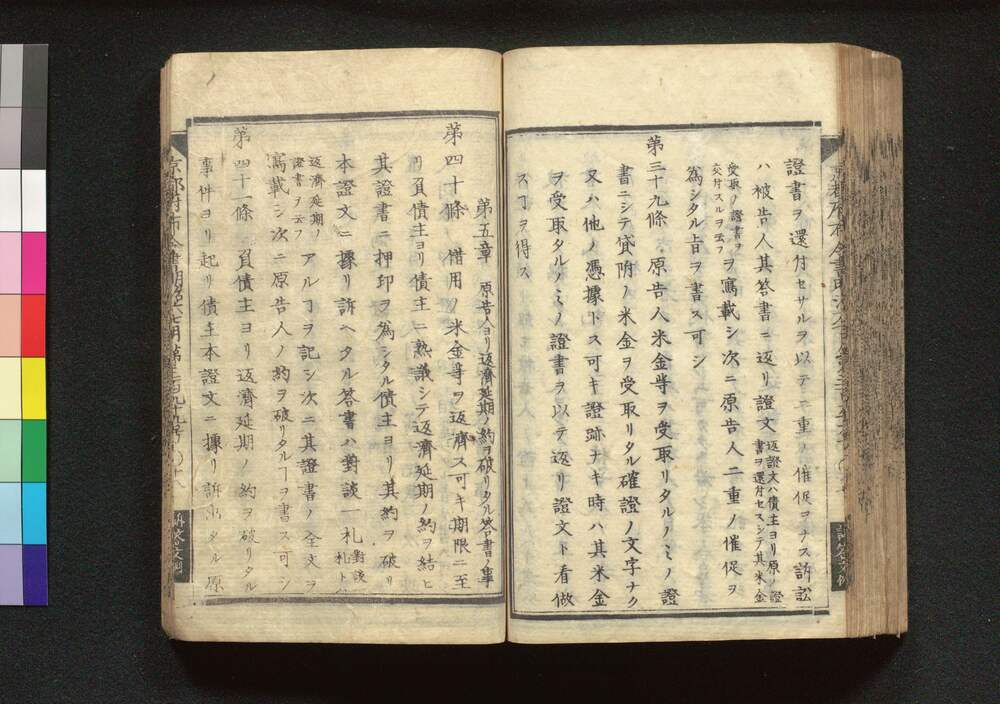 證書ヲ還付セサルヲ以テ二重ノ催促ヲナス訴訟
ハ被告人其答書ニ返リ證文返證文ハ債主ヨリ原ノ證書ヲ還付セスシテ其米金
受取ノ證書ヲ交付スルヲ云フヲ寫載シ次ニ原告人二重ノ催促ヲ
為シタル旨ヲ書ス可シ
第三十九條 原告人米金等ヲ受取リタルノミノ證
書ニシテ貸附ノ米金ヲ受取リタル確證ノ文字ナク
又ハ他ノ憑據トス可キ證跡ナキ時ハ其米金
ヲ受取タルノミノ證書ヲ以テ返リ證文ト看做
スヿヲ得ス
第五章 原告人ヨリ返濟延期ノ約ヲ破リタル答書ノ事
第四十條 借用ノ米金等ヲ返濟ス可キ期限ニ至
リ負債主ヨリ債主ニ熟議シテ返濟延期ノ約ヲ結ヒ
其證書ニ押印ヲ為シタル債主ヨリ其約ヲ破リ
本證文ニ據リ訴ヘタル答書ハ對談一札對談一札トハ
返濟延期ノ證書ヲ云フアルヿヲ記シ次ニ其證書ノ全文ヲ
寫載シ次ニ原告人ノ約ヲ破リタルヿヲ書ス可シ
第四十一條 負債主ヨリ返濟延期ノ約ヲ破リタル
事件ヨリ起リ債主本證文ニ據リ訴出タル原